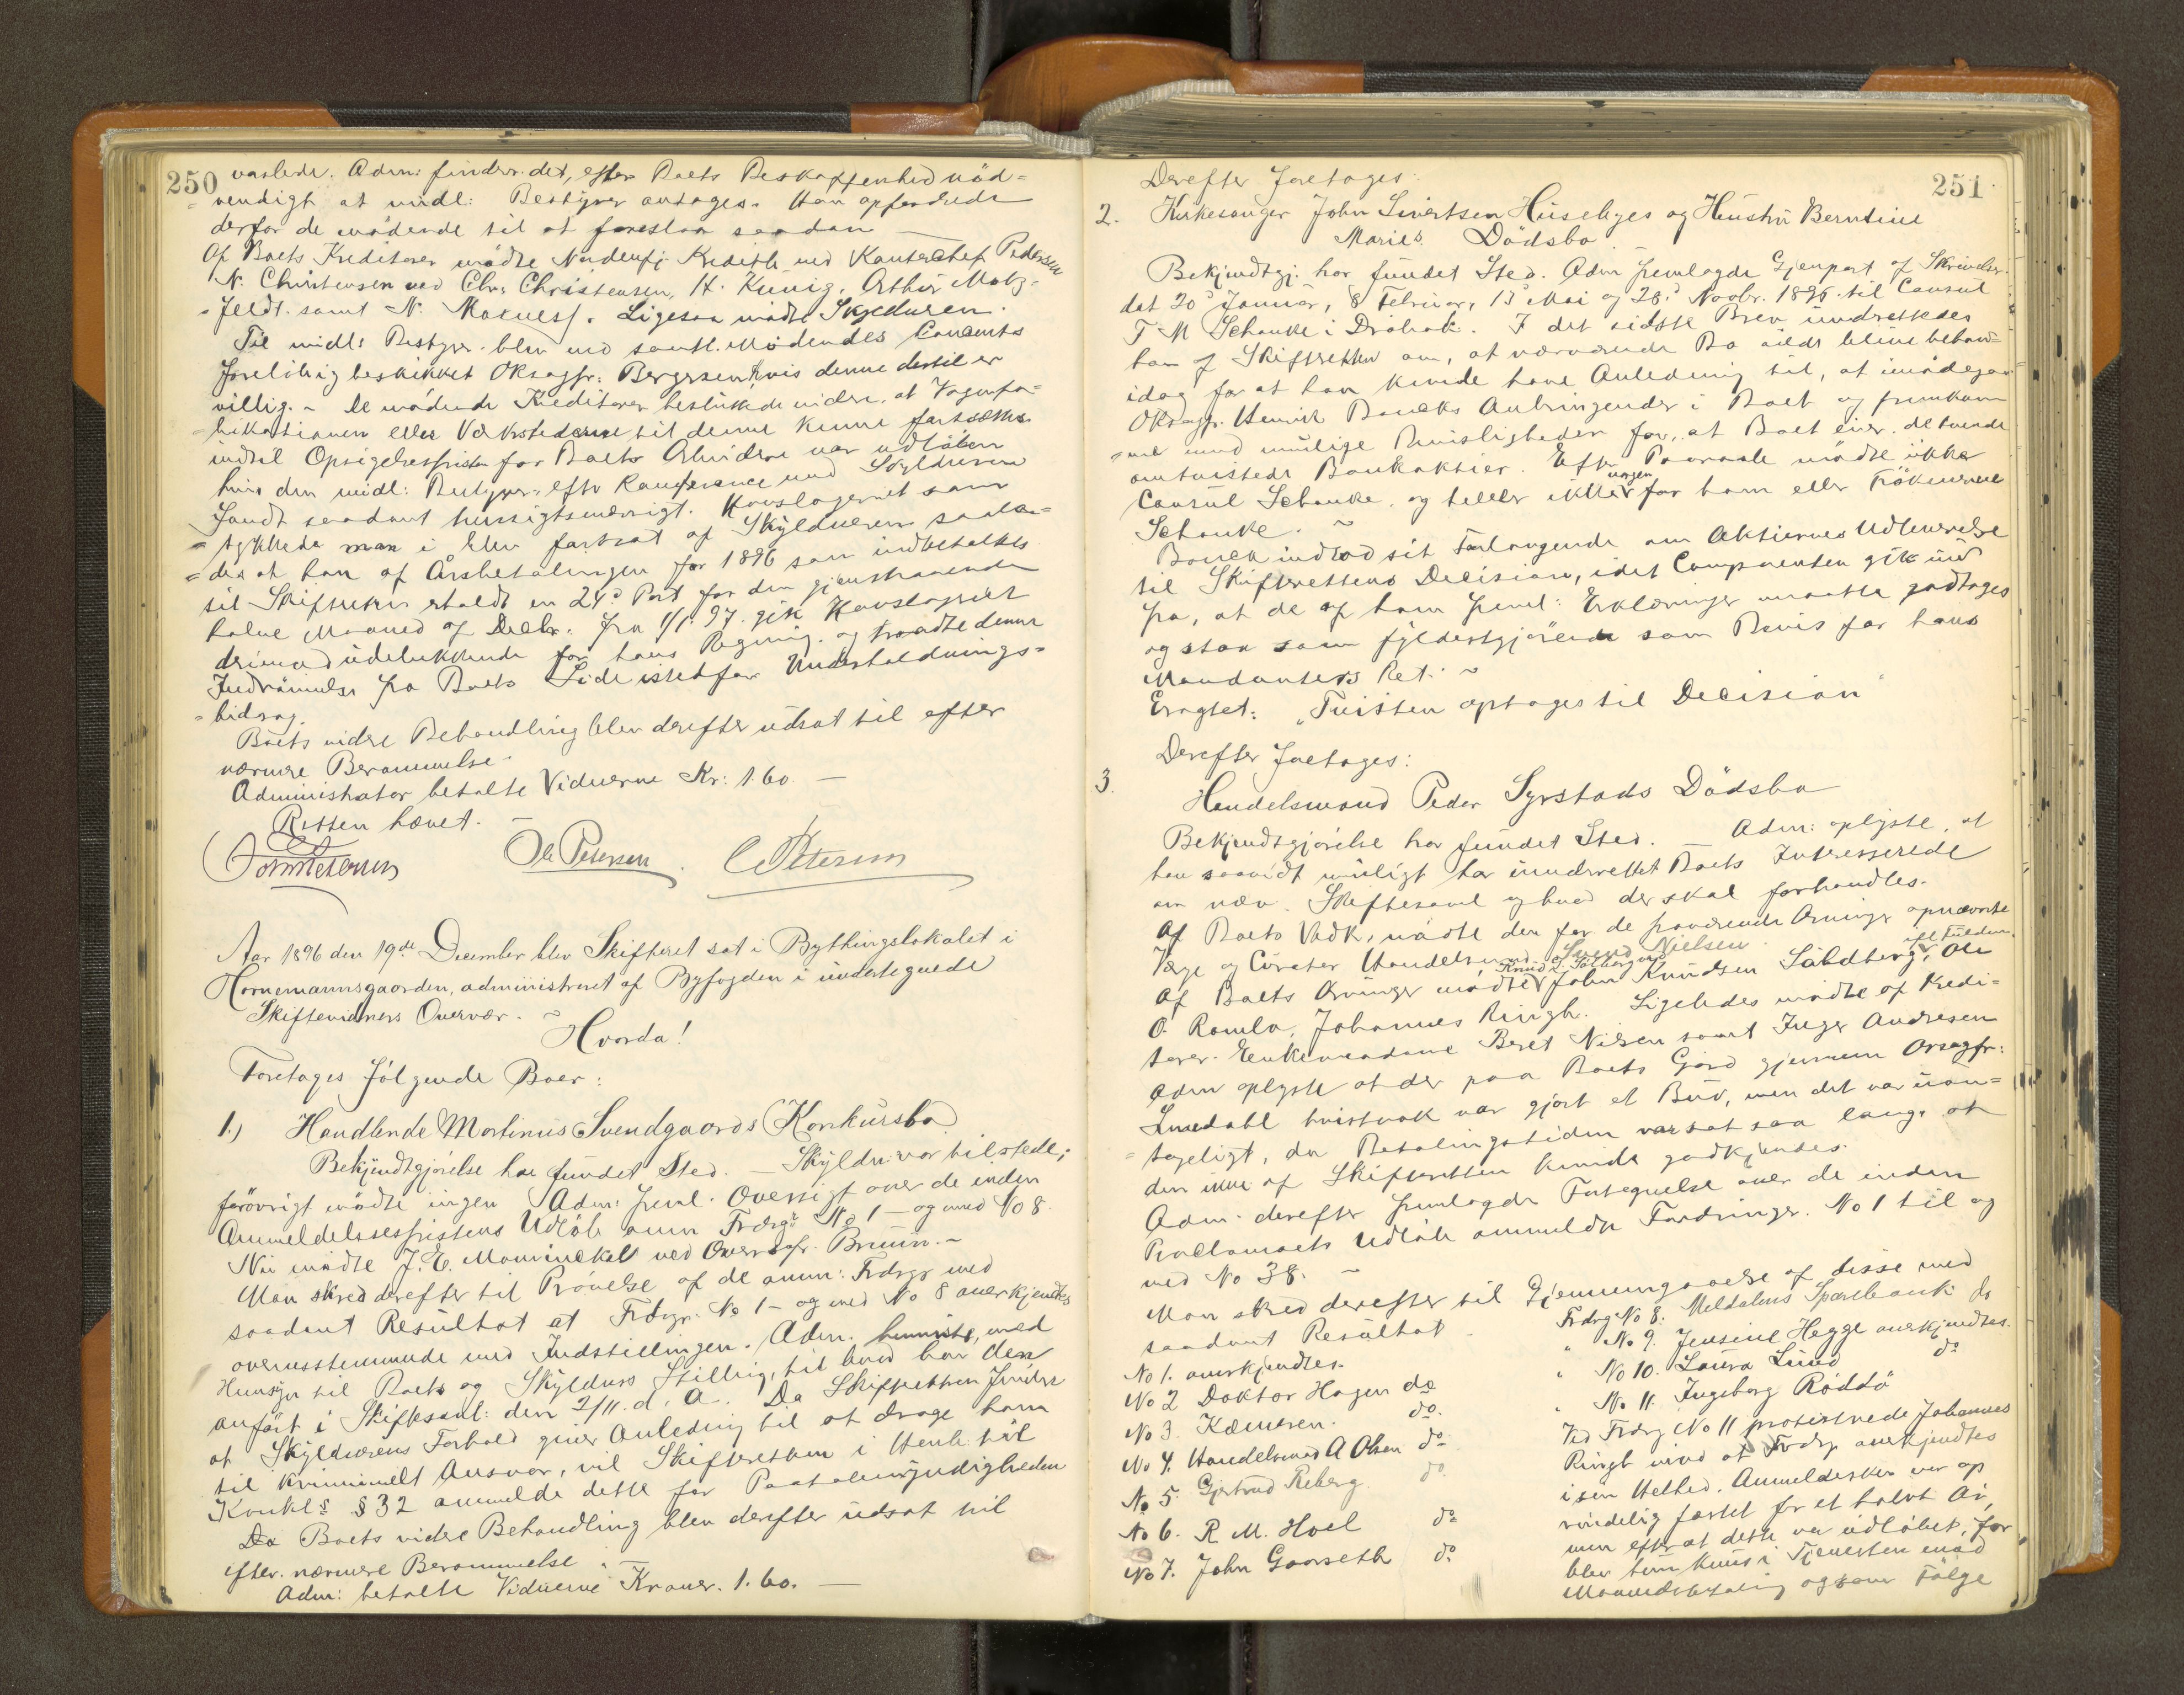 250
varslede. Adm: finder det, efter Boets Beskaffenhed nöd=
=vendigt at midl: Bestyrer antages. Han opfordrede
derfor de mödende til at foreslaa saadan
Af Boets Kreditorer mödte Nordenfj. Kreditb ved Kontorchef Pedersen
N. Christensen ved Chr. Christensen, H. Künig, Arthur Motz=
=feldt samt N. . Ligesaa mödte Skyldneren.
Til midl: Bestyrer blev med samtl. Mödendes Consents
foreløbig beskikket ORsagfr: Bergersen hvis denne dertil er
villig. - De mødende Kreditorer besluttede videre, at Vognfa=
=brikationen eller Værkstederne til denne kunne fortsættes
indtil Opsigelsesfristen for Boets Arbeidere var udlöben
hvis den midl: Bestyrer efter Konferance med Skyldneren
fandt saadant hensigtsmæssigt. Hovslageriet sam=
=tykkede man i blev fortsat af Skyldneren saale=
=des at han af Årsbetalingen for 1896 som indbetaltes
til Skifteretten erholdt en 24de Part for den gjenstaaende
halve Maaned af Decbr. fra 1/1 97. gik Hovslageriet
derimod udelukkende for hans Regning og traadte denne
Indrömmelse fra Boets Side istedfor Underholdnings=
=bidrag.
Boets videre Behandling blev derefter udsat til efter
nærmere Berammelse.
Administrator betalte Vidnerne Kr: 1.60. —
Retten hævet. —
Ole Petersen. C Petersen
Aar 1896 den 19de December blev Skifteret sat i Bythingslokalet i
Hornemannsgaarden, administreret af Byfogden i undertegnede
Skiftevidners Overvær. ~
Hvorda!
Foretages følgende Boer:
1.) Handlende Martinus Svendgaards Konkursbo
Bekjendtgjörelse har fundet Sted. — Skyldn: var tilstede;
forövrigt mödte ingen Adm: freml. Oversigt over de inden
Anmeldelsesfristens Udlöb anm Frdrgr No 1 — og med No 8.
Nu mödte J. E. Mowinckel ved Oversagfr. Bruun. ~
Man skred derefter til Prövelse af de anm: Frdrgr med
saadant Resultat at Frdrgr. No 1 — og med No 8 anerkjendtes
overensstemmende med Indstillingen. Adm. henviste, med
Hensyn til Boets og Skyldners Stilling, til hvad han den
anfört i Skiftesaml: den 2/11. d. A. Da Skifteretten finder
at Skyldnerens Forhold giver Anledning til at drage ham
til kriminelt Ansvar, vil Skifteretten i Henh. til
Konkls § 32 anmelde dette for Paatalemyndigheden
Da Boets videre Behandling blev derefter udsat til
efter nærmere Berammelse. —
Adm: betalte Vidnerne Kroner. 1.60. —
251
Derefter foretages:
2. Kirkesanger John Sivertsen Husebyes og Hustru Berntine
Maries Dödsbo.
Bekjendtgj. har fundet Sted. Adm fremlagde Gjenpart af Skrivelser
dat 20de Januar, 8 Februar, 13de Mai og 28de Novbr. 1896 til Consul
T M Schanke i Dröbak. I det sidste Brev underrettedes
han af Skifteretten om, at nærværende Bo vilde blive behand=
idag for at han kunde have Anledning til, at imödegaa
ORsagfr. Henrik Boucks Anbringender i Boet og fremkom=
=me med mulige Bevisligheder for, at Boet eier de tvende
omtvistede Bankaktier. Efter Paaraab mödte ikke
Consul Schanke og heller ikke nogen for ham eller Frökenerne
Schanke. ~
Bouck indlod sit Forlangende om Aktiernes Udleverelse
til Skifterettens Decision, idet Comparenten gik ud
fra, at de af ham freml: Erklæringer maatte godtages
og staa som fyldestgjörende som Bevis for hans
Mandanters Ret. ~
Eragtet: „Tvisten optages til Decision"
Derefter foretages:
3.
Handelsmand Peder Syrstads Dödsbo
Bekjendtgjörelse har fundet Sted. Adm: oplyste, at
han saavidt muligt har underrettet Boets Interesserede
om nærv. Skiftesaml og hvad der skal forhandles.
Af Boets Vedk, mödte den for de fraværende Arvinger opnævnte
Værge og Curator Handelsmand Svend Nielsen
Af Boets Arvinger mödte Knud J. Solberg ved John Knudsen Sahlberg ifl Fuldm., Ole
O. Romlo, Johannes Ringli. Ligeledes mödte af Kredi=
torer. Enkemadame Beret Nilsen samt Inger Andresen
Adm oplyste at der paa Boets Gård gjennem Orsagfr:
Lindahl tvistnok var gjort et Bud, men det var uan=
=tageligt, da Betalingstiden var sat saa lang at
den ikke af Skifteretten kunde godkjendes.
Adm. derefter fremlagde Fortegnelse over de inden
Proclamaets Udlöb anmeldte Fordringer. No 1 til og
med No 38. ~
Man skred derefter til Gjennemgaaelse af disse med
saadant Resultat
No 1. anerkjendtes.
No 2 Doktor Hagen do
No 3. Kæmneren. do.
No 4. Handelsmand A Olsen do
No 5. Gjertrud Reberg do
No 6. R M. Hoel do
No 7. John Gaarseth do
Frdrg No 8: Meldalens Sparebank do
" No 9. Jensine Hegge anerkjendtes.
" No 10. Laura Lund do
" No 11. Ingeborg Röddö
Ved Frdrg No 11 protesterede Johannes
Ringli imod at Frdrg anerkjendtes
i sin Helhed. Anmeldersken var op
rindelig fæstet for et halvt År,
men efterat dette var udlöbet, for
blev hun kuns i Tjenesten mod
Maanedsbetaling og som Følge